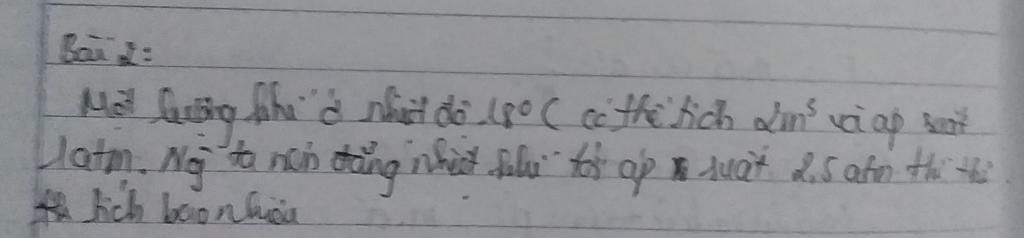 Bài 2:
Một lượng khí ở nhiệt độ 18°C có thể tích 2m³ và áp suất
1atm. Ng ta nén đẳng nhiệt khí tới áp suất 2,5 atm thì thể
tích bao nhiêu